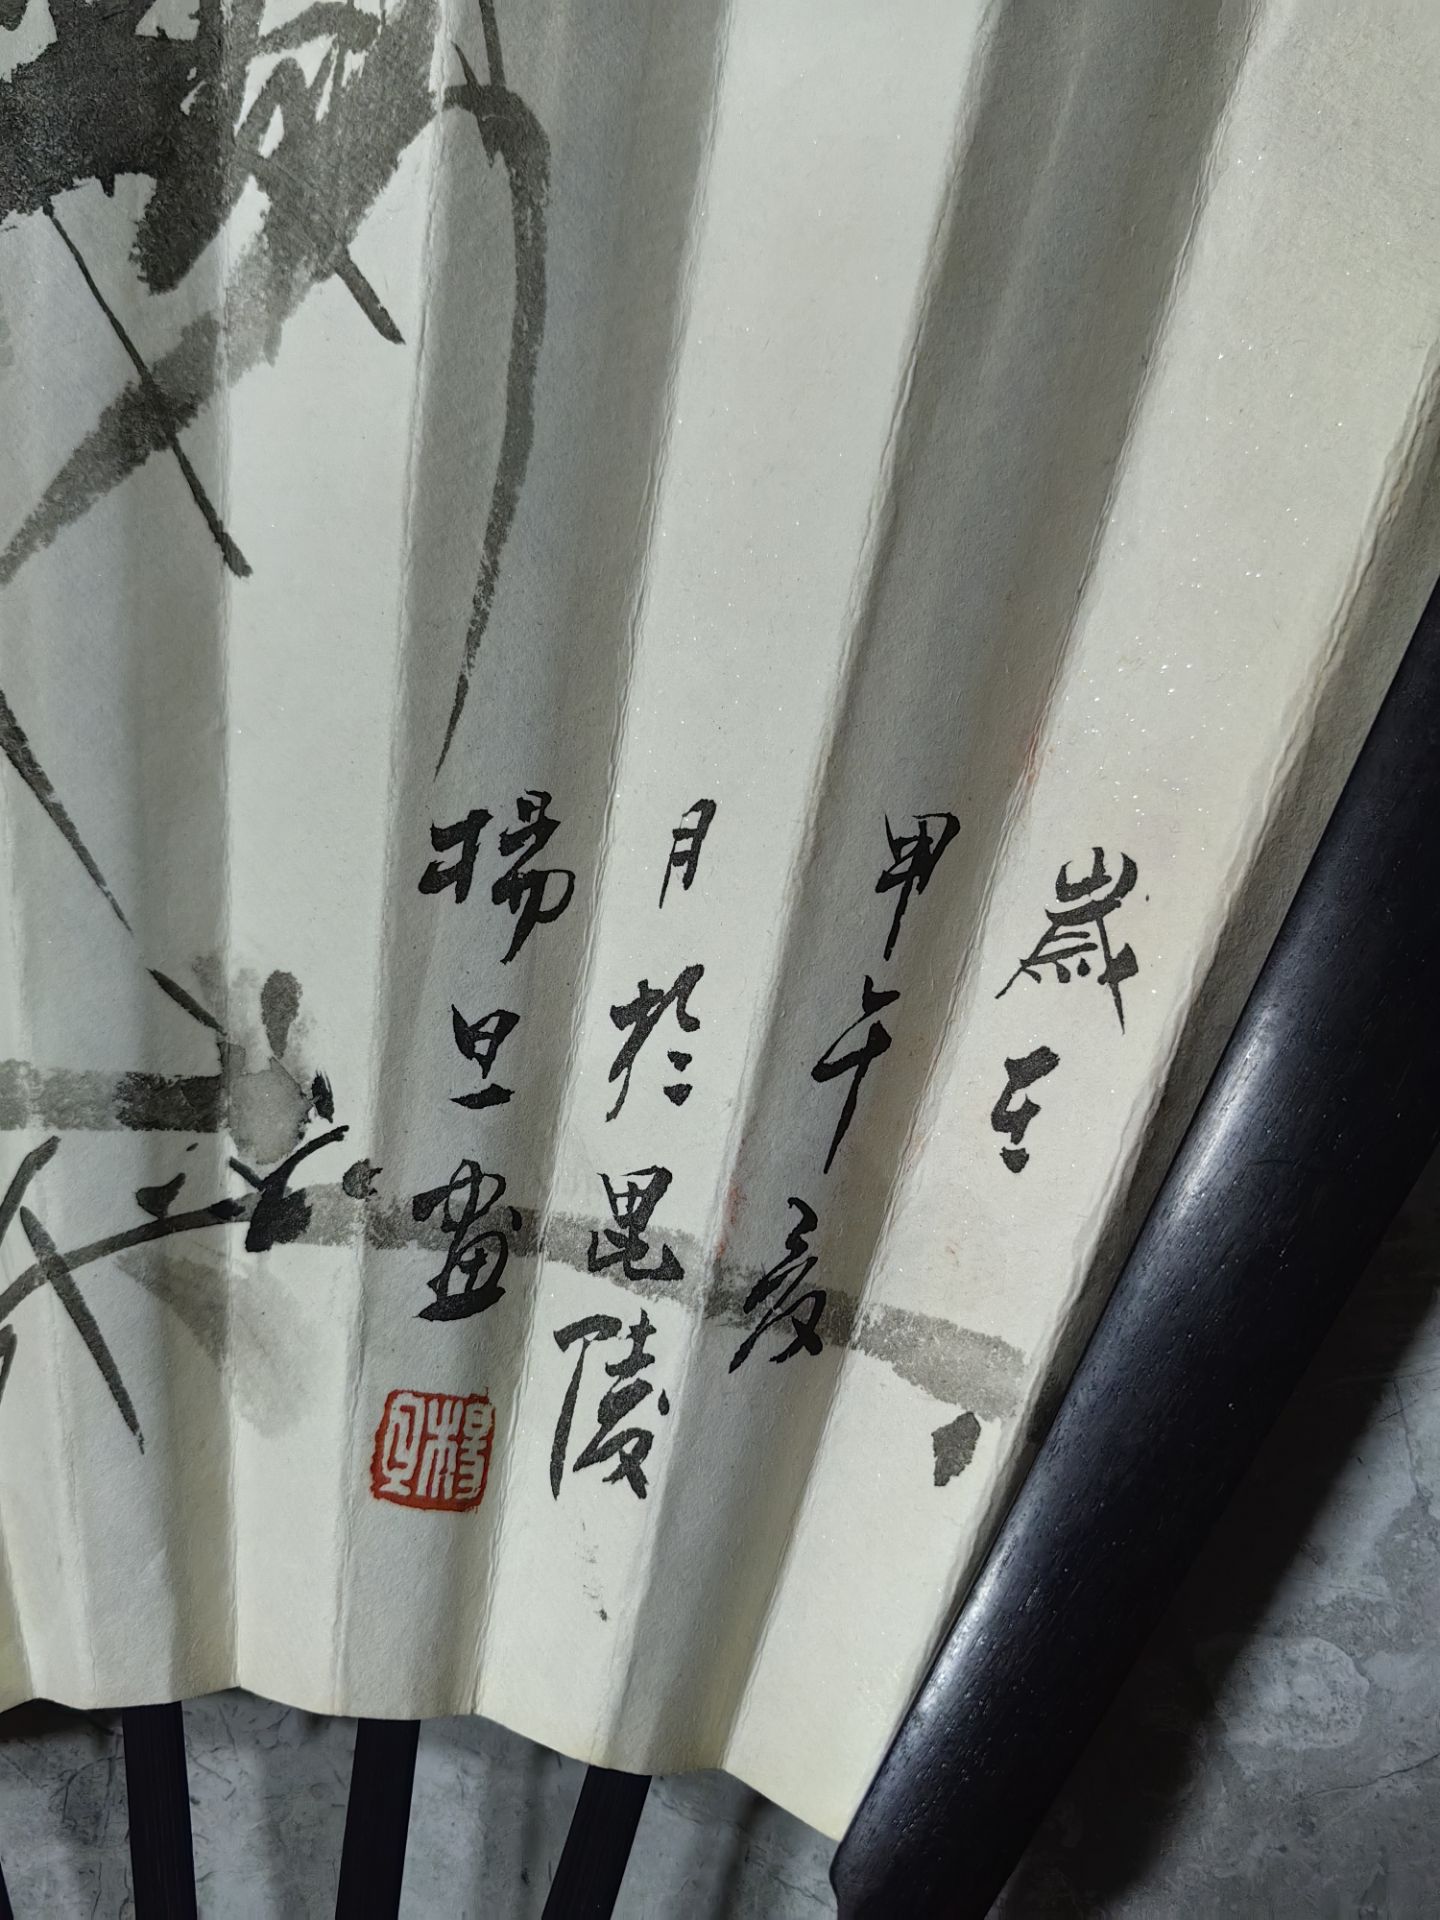 歲在
甲午夏
月於毘陵
楊旦畫
楊旦